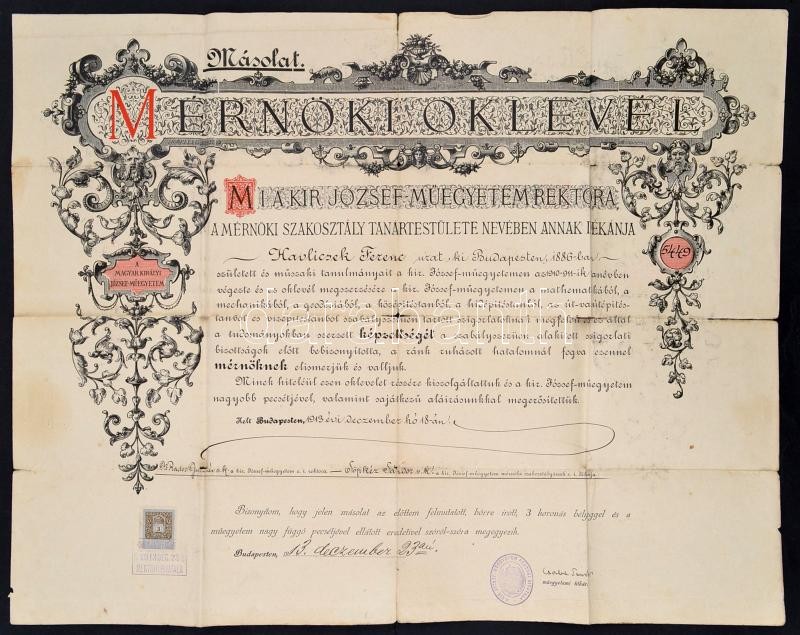 Másolat.
MÉRNÖKI OKLEVÉL
MI A KIR. JÓZSEF-MŰEGYETEM REKTORA
A MÉRNÖKI SZAKOSZTÁLY TANÁRTESTÜLETE NEVÉBEN ANNAK DÉKÁNJA
A
MAGYAR KIRÁLYI
JÓZSEF-MŰEGYETEM
5449
Havlicsek Ferenc urat, ki Budapesten, 1886-ban
született és műszaki tanulmányait a kir. József-műegyetemen az 1910-911-ik tanévben
végezte és az oklevél megszerzésére a kir. József-műegyetemen a mathematikából, a
mechanikából, a geodésiából, a középítéstanból, a hídépítéstanból, az út-vasútépítés-
tanból és vízépítéstanból szabályszerűen tartott szigorlatoknál megfelelt és ez által
a tudományokban szerzett képzettségét a szabályszerűen alakított szigorlati
bizottságok előtt bebizonyította, a ránk ruházott hatalomnál fogva ezennel
mérnöknek elismerjük és valljuk.
Minek hiteléül ezen oklevelet részére kiszolgáltattuk és a kir. József-műegyetem
nagyobb pecsétjével, valamint sajátkezű aláírásunkkal megerősítettük.
Kelt Budapesten, 1913 évi deczember hó 18-án.
a kir. József-műegyetem e. i. rektora — Sándor a kir. József-műegyetem mérnöki szakosztályának e. i. dékánja.
Bizonyítom, hogy jelen másolat az előttem felmutatott, bőrre írott, 3 koronás bélyeggel és a
műegyetem nagy függő pecsétjével ellátott eredetivel szóról-szóra megegyezik.
Budapesten, 1913. deczember 23án.
műegyetemi titkár.